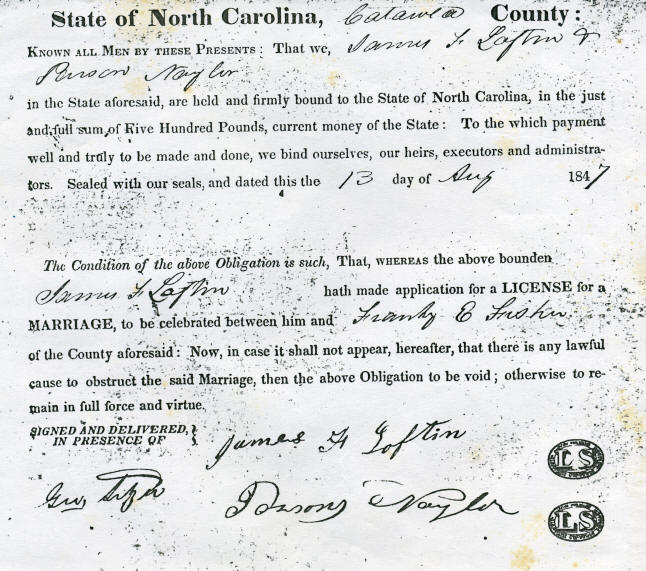 State of North Carolina, Catawba County:
KNOWN ALL MEN BY THESE PRESENTS: That we, James F Loftin &
Naylor
in the State aforesaid, are held and firmly bound to the State of North Carolina, in the just
and full sum of Five Hundred Pounds, current money of the State: To the which payment
well and truly to be made and done, we bind ourselves, our heirs, executors and administra-
tors. Sealed with our seals, and dated this the 13 day of Aug 1847
The Condition of the above Obligation is such, That, WHEREAS the above bounden
James F Loftin hath made application for a LICENSE for a
MARRIAGE, to be celebrated between him and Franky E
of the County aforesaid: Now, in case it shall not appear, hereafter, that there is any lawful
cause to obstruct the said Marriage, then the above Obligation to be void; otherwise to re-
main in full force and virtue.
SIGNED AND DELIVERED,
IN PRESENCE OF
James F Loftin
LS
Naylor
LS